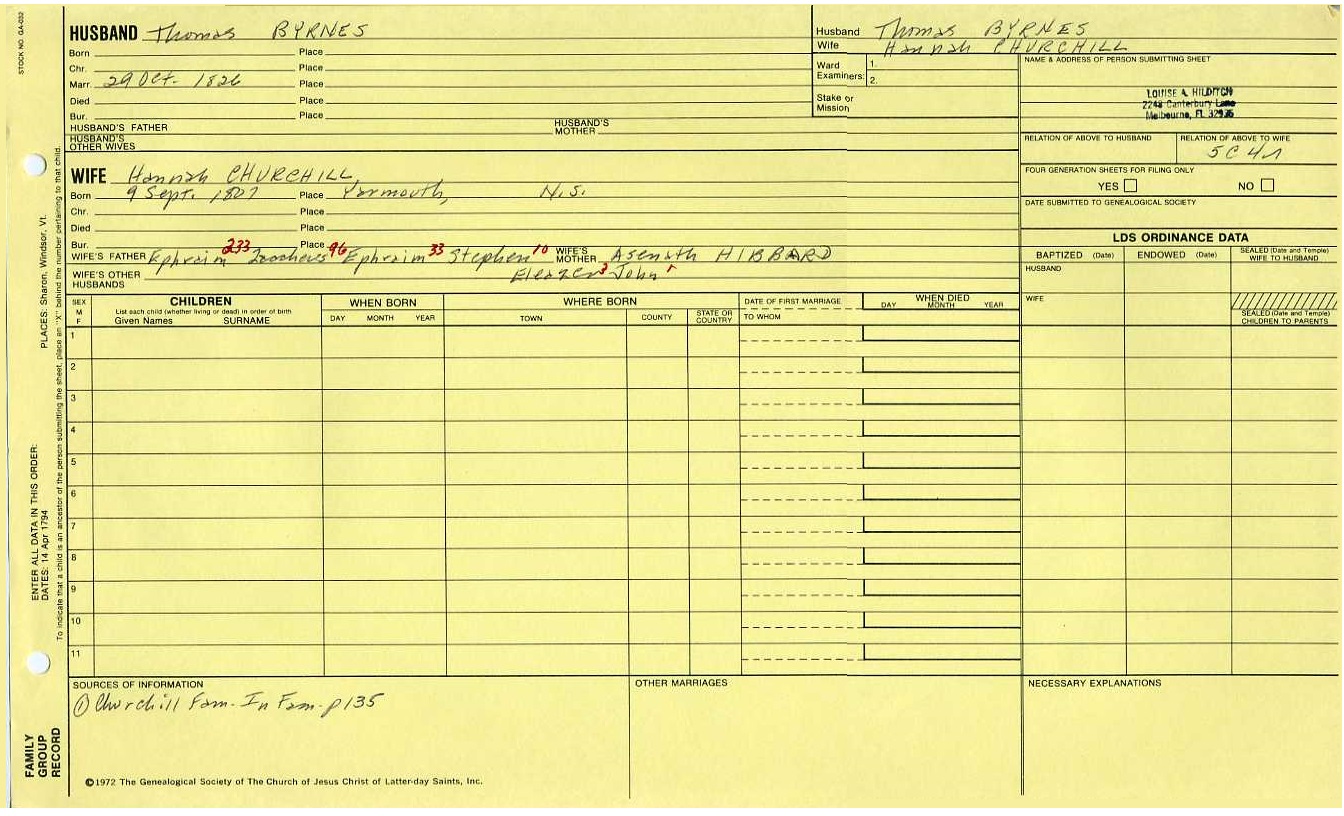 STOCK NO. GA-032
HUSBAND Thomas BYRNES
Born Place
Chr. Place
Marr. 29 Oct. 1826 Place
Died Place
Bur. Place
HUSBAND'S FATHER HUSBAND'S MOTHER
HUSBAND'S OTHER WIVES
Husband Thomas BYRNES
Wife Hannah CHURCHILL
Ward Examiners: 1.
2.
Stake or Mission
NAME & ADDRESS OF PERSON SUBMITTING SHEET
LOUISE A. HILDITCH
2248 Canterbury Lane
Melbourne, FL 32935
RELATION OF ABOVE TO HUSBAND RELATION OF ABOVE TO WIFE
5C4r
FOUR GENERATION SHEETS FOR FILING ONLY
YES NO
DATE SUBMITTED TO GENEALOGICAL SOCIETY
WIFE Hannah CHURCHILL
Born 9 Sept. 1807 Place Yarmouth, N.S.
Chr. Place
Died Place
Bur. Place
WIFE'S FATHER Ephraim 233 96 Ephraim 33 Stephen 10 WIFE'S MOTHER Asenath HIBBARD
Eleazer 3 John 1
WIFE'S OTHER HUSBANDS
LDS ORDINANCE DATA
BAPTIZED (Date) ENDOWED (Date) SEALED (Date and Temple) WIFE TO HUSBAND
HUSBAND
WIFE
SEALED (Date and Temple) CHILDREN TO PARENTS
SEX M F
CHILDREN
List each child (whether living or dead) in order of birth
Given Names SURNAME
WHEN BORN
DAY MONTH YEAR
WHERE BORN
TOWN COUNTY STATE OR COUNTRY
DATE OF FIRST MARRIAGE
TO WHOM
WHEN DIED
DAY MONTH YEAR
1
2
3
4
5
6
7
8
9
10
11
SOURCES OF INFORMATION
① Churchill Fam. In Fam. p135
OTHER MARRIAGES
NECESSARY EXPLANATIONS
©1972 The Genealogical Society of The Church of Jesus Christ of Latter-day Saints, Inc.
FAMILY GROUP RECORD
ENTER ALL DATA IN THIS ORDER:
DATES: 14 Apr 1794
PLACES: Sharon, Windsor, Vt.
To indicate that a child is an ancestor of the person submitting the sheet, place an "X" behind the number pertaining to that child.